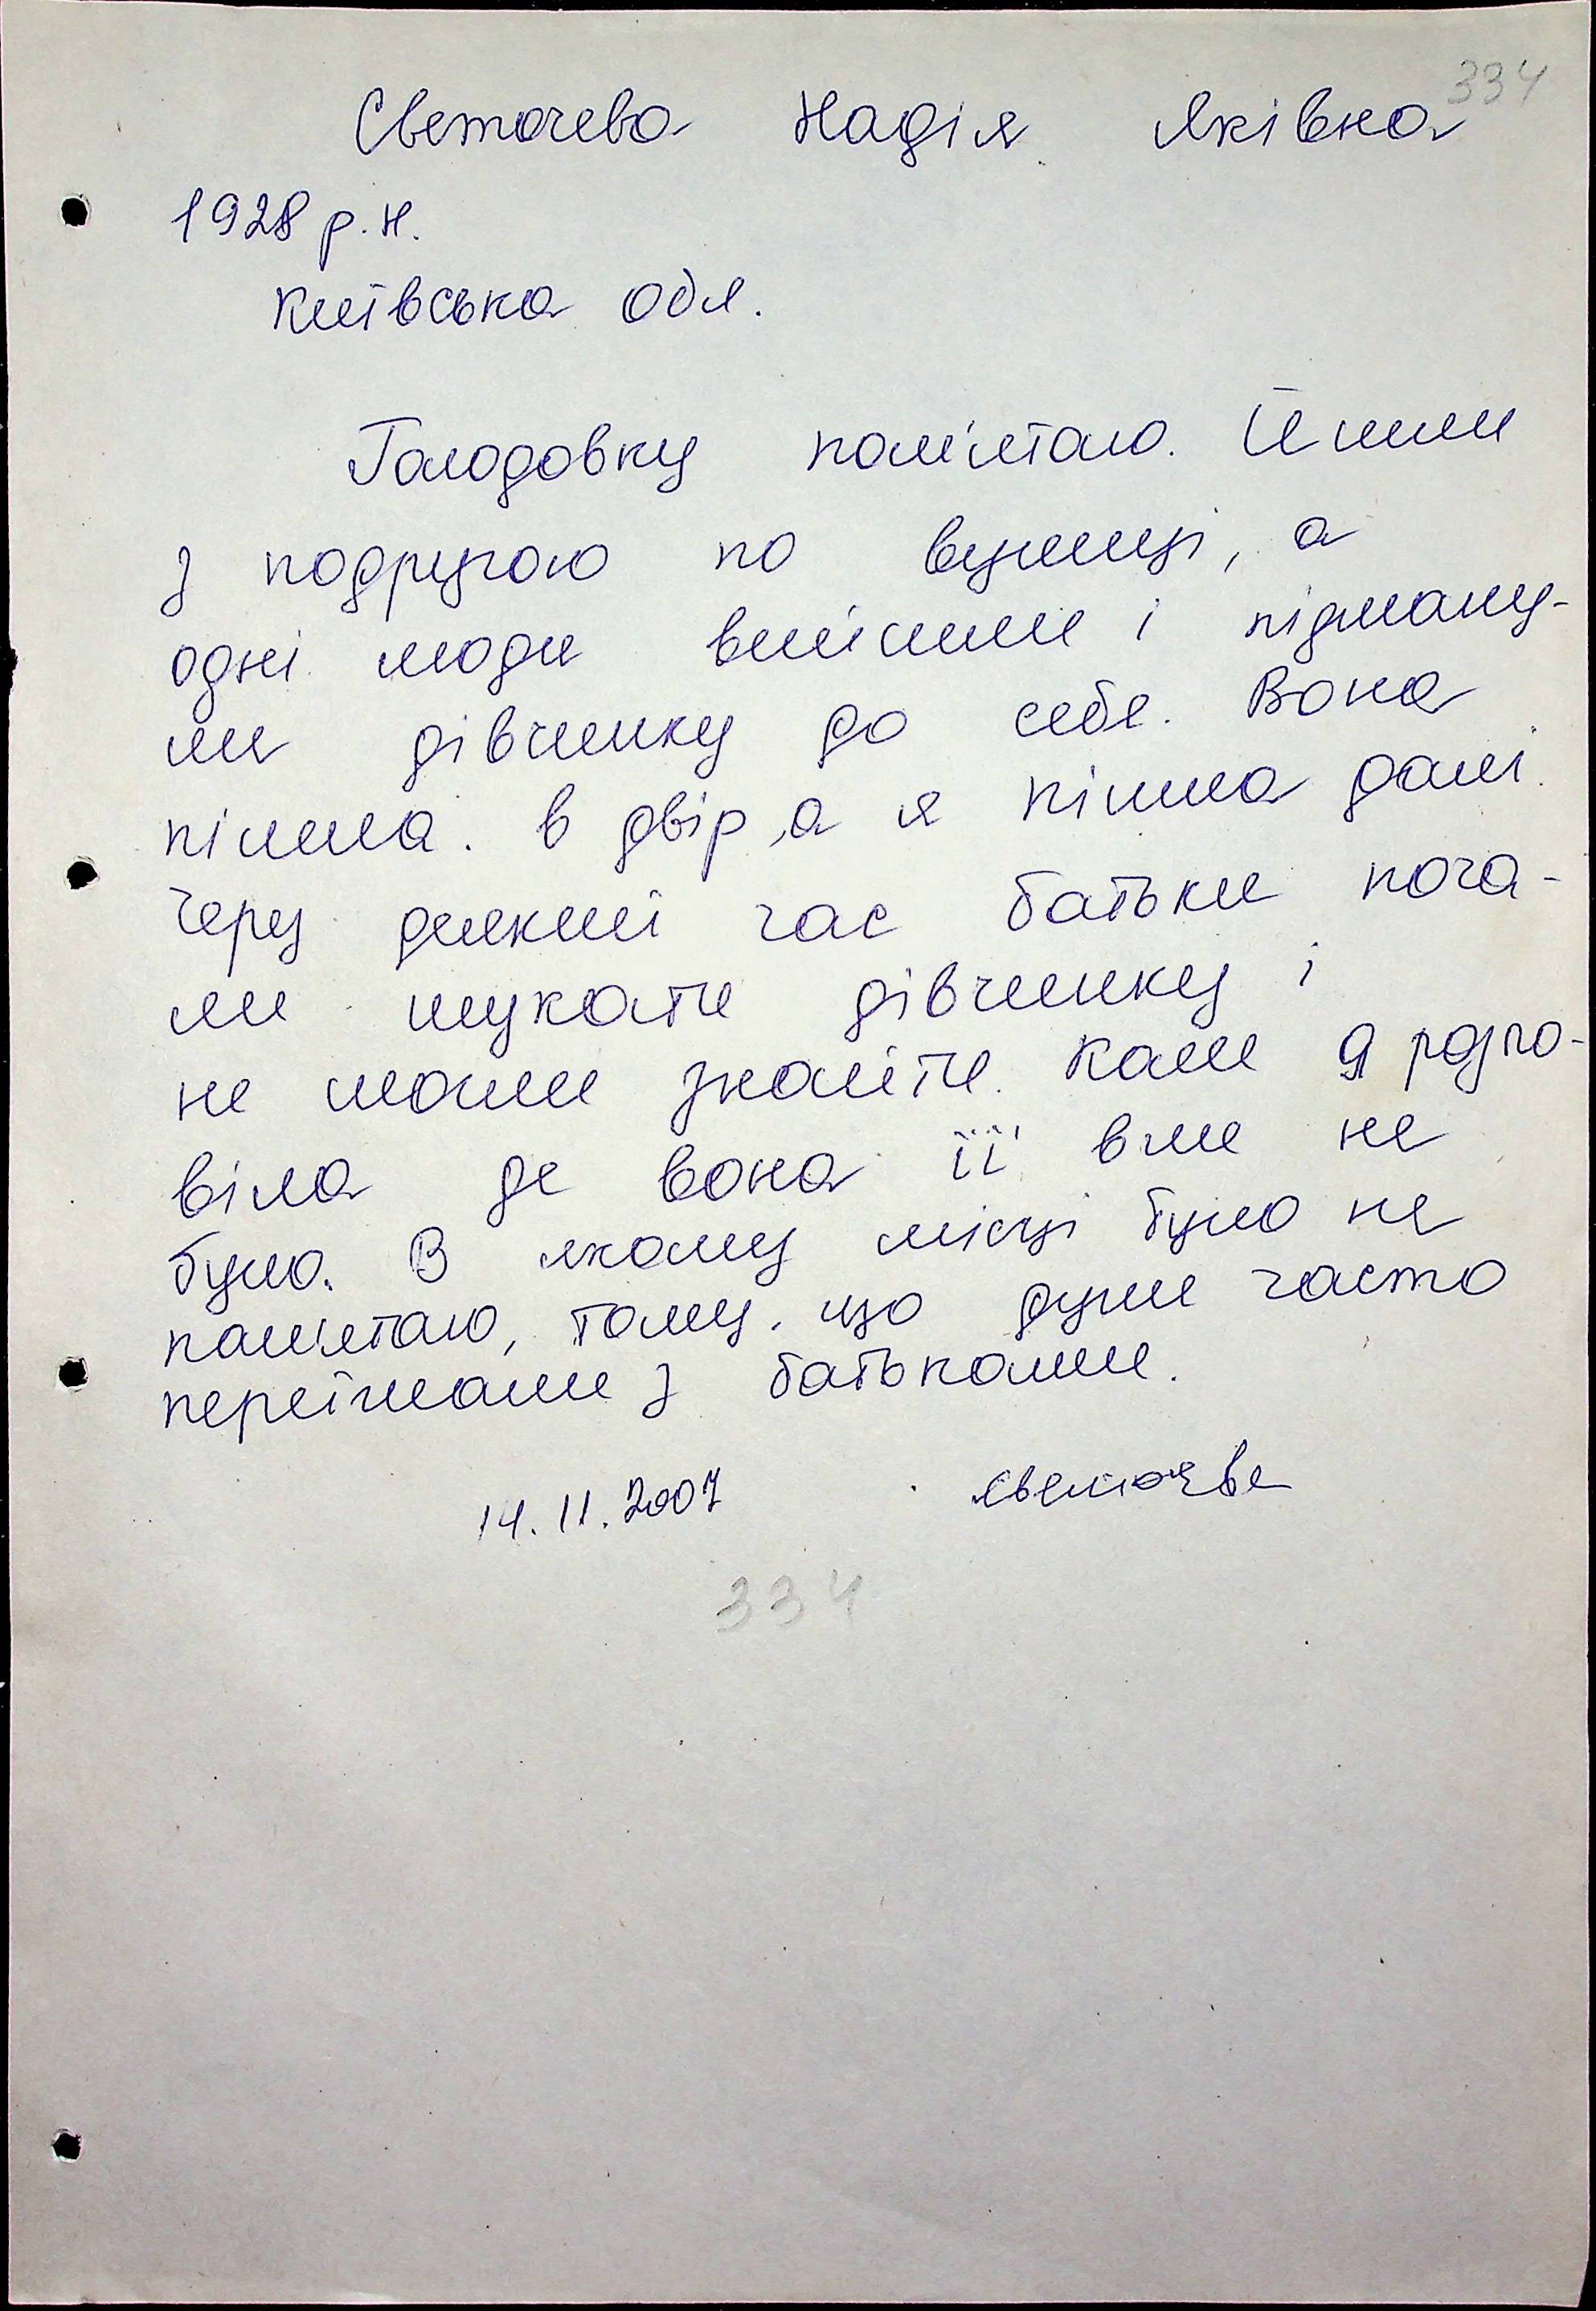 334
Светочева Надія Яківна
1928 р.н.
Київська обл.
Голодовку пам'ятаю. Йшли
з подругою по вулиці, а
одні люди вийшли і підману-
ли дівчинку до себе. Вона
пішла в двір, а я пішла далі.
Через деякий час батьки поча-
ли шукати дівчинку і
не могли знайти. Коли я розпо-
віла де вона її вже не
було. В якому місці було не
пам'ятаю, тому що дуже часто
переїжали з батьками.
14.11.2007
334